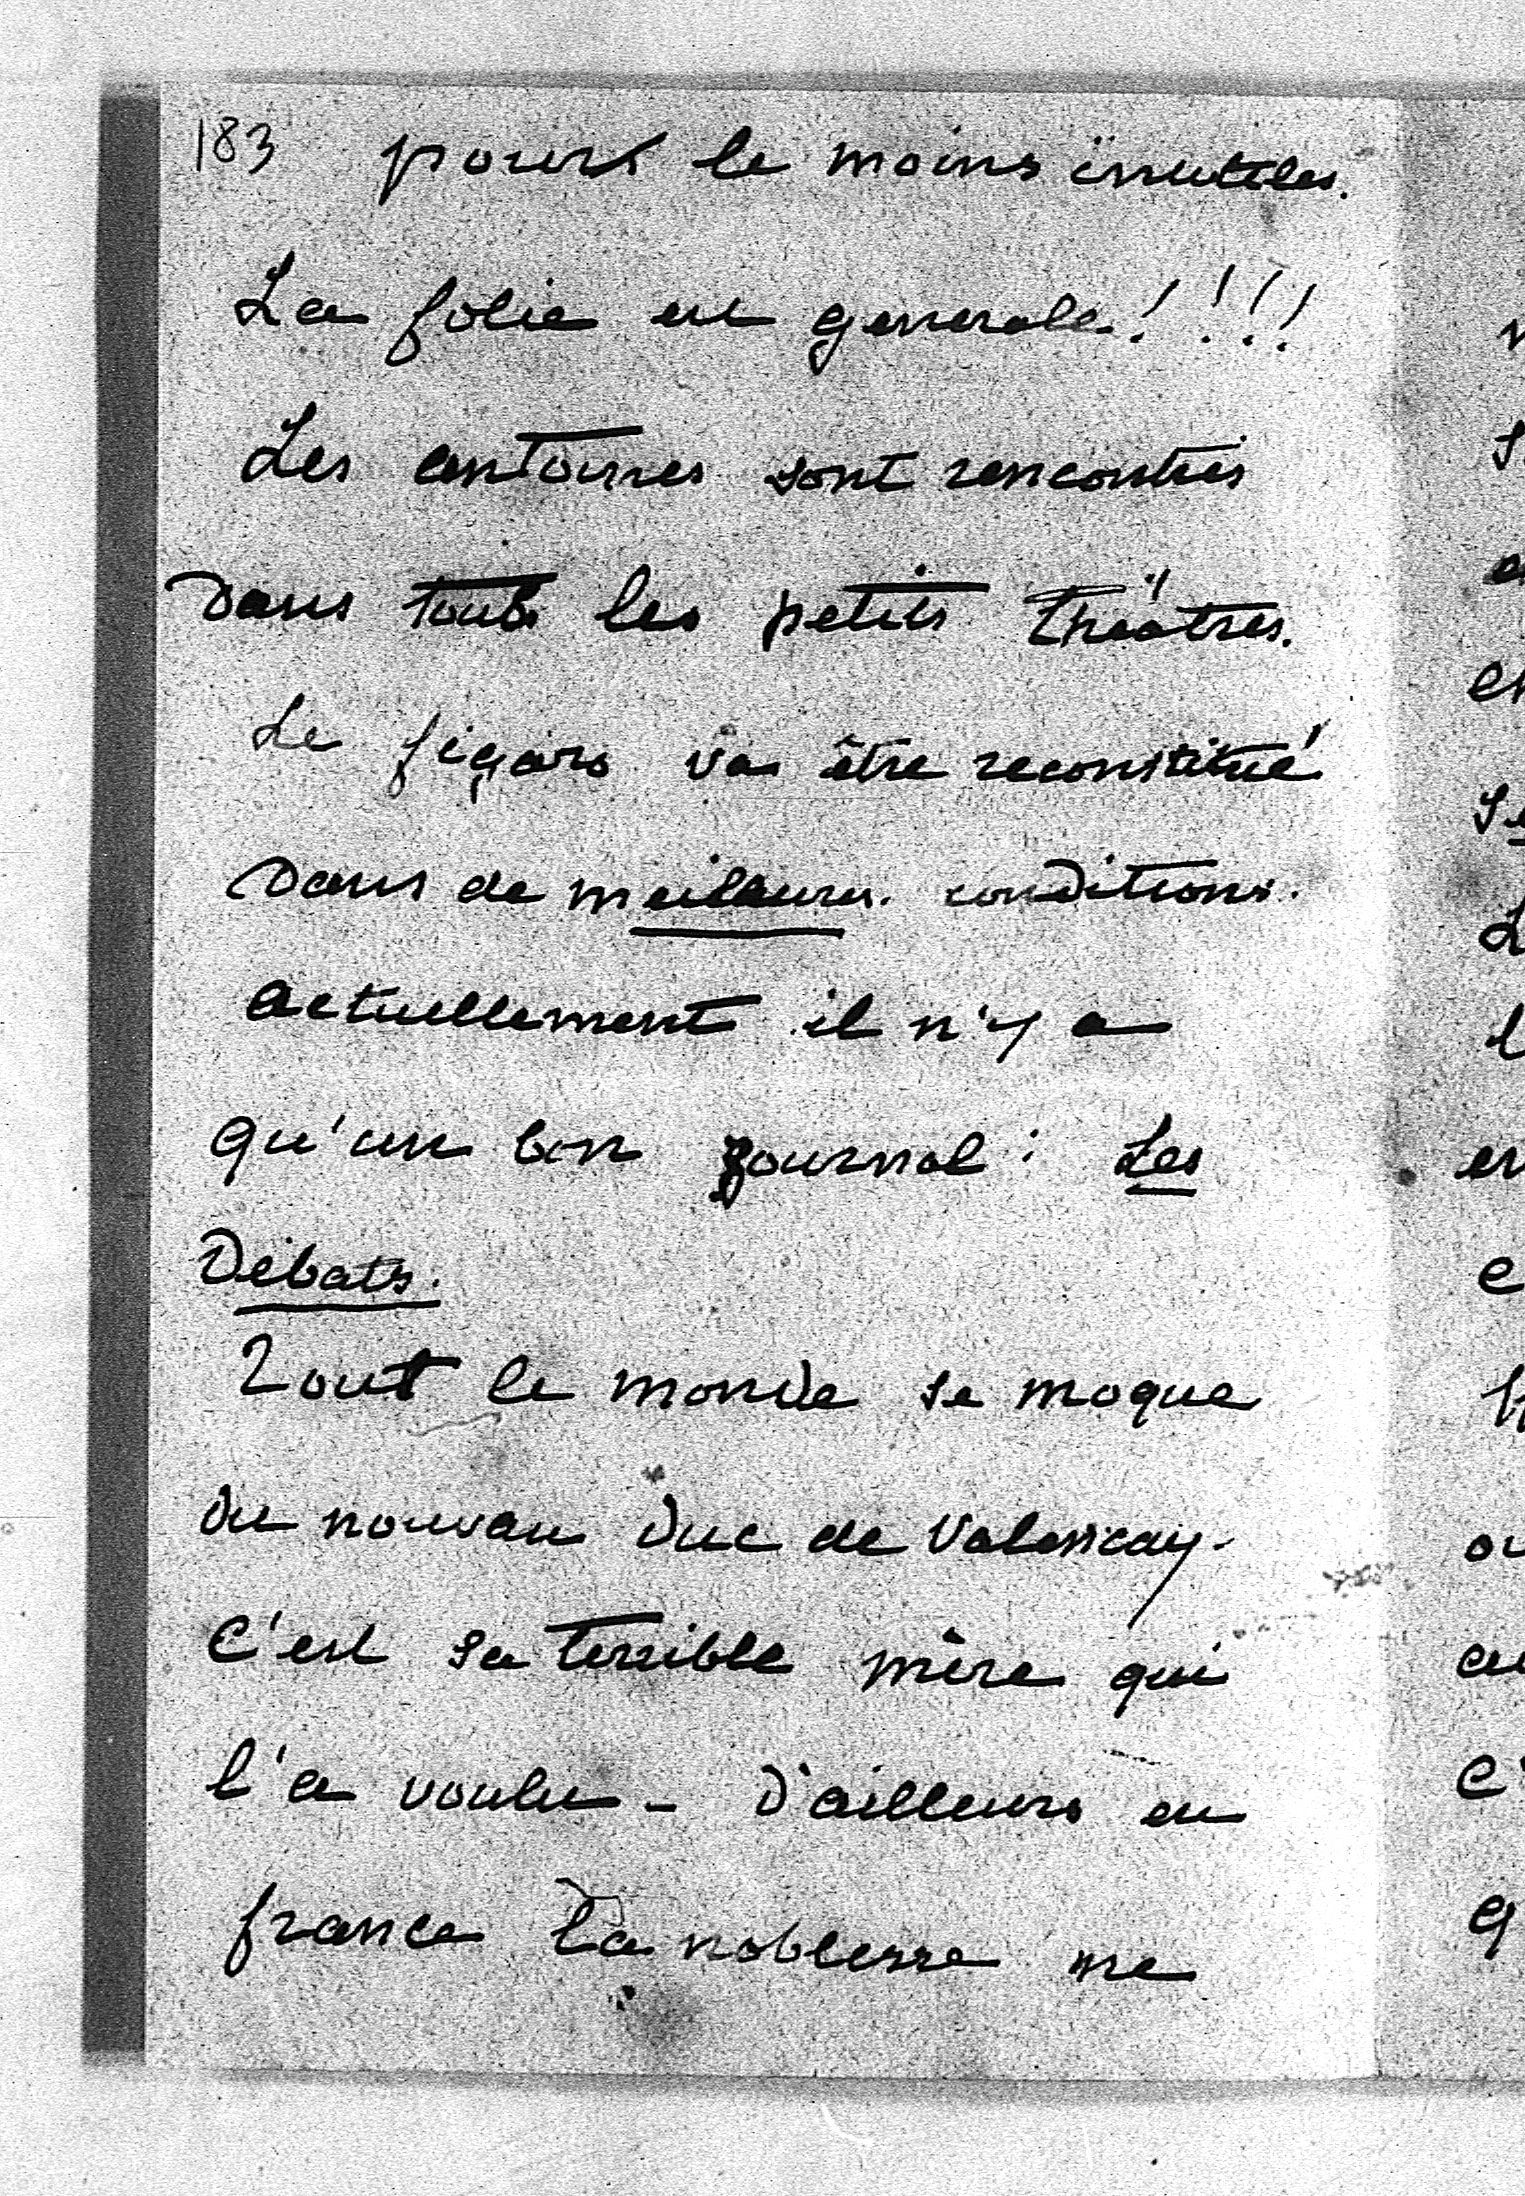 183 pour le moins inutiles.
La folie est generale! ! ! !
Les centaures sont rencontrés
Dans touts les petits théatres.
Le figaro va être reconstitué
Dans de meilleures conditions.
actuellement il n'y a
qu'un bon journal : Les
Débats.
Tout le monde se moque
du nouveau Duc de Valencay.
C'est sa terrible mère qui
l'a voulu - D'ailleurs en
france la noblesse ne